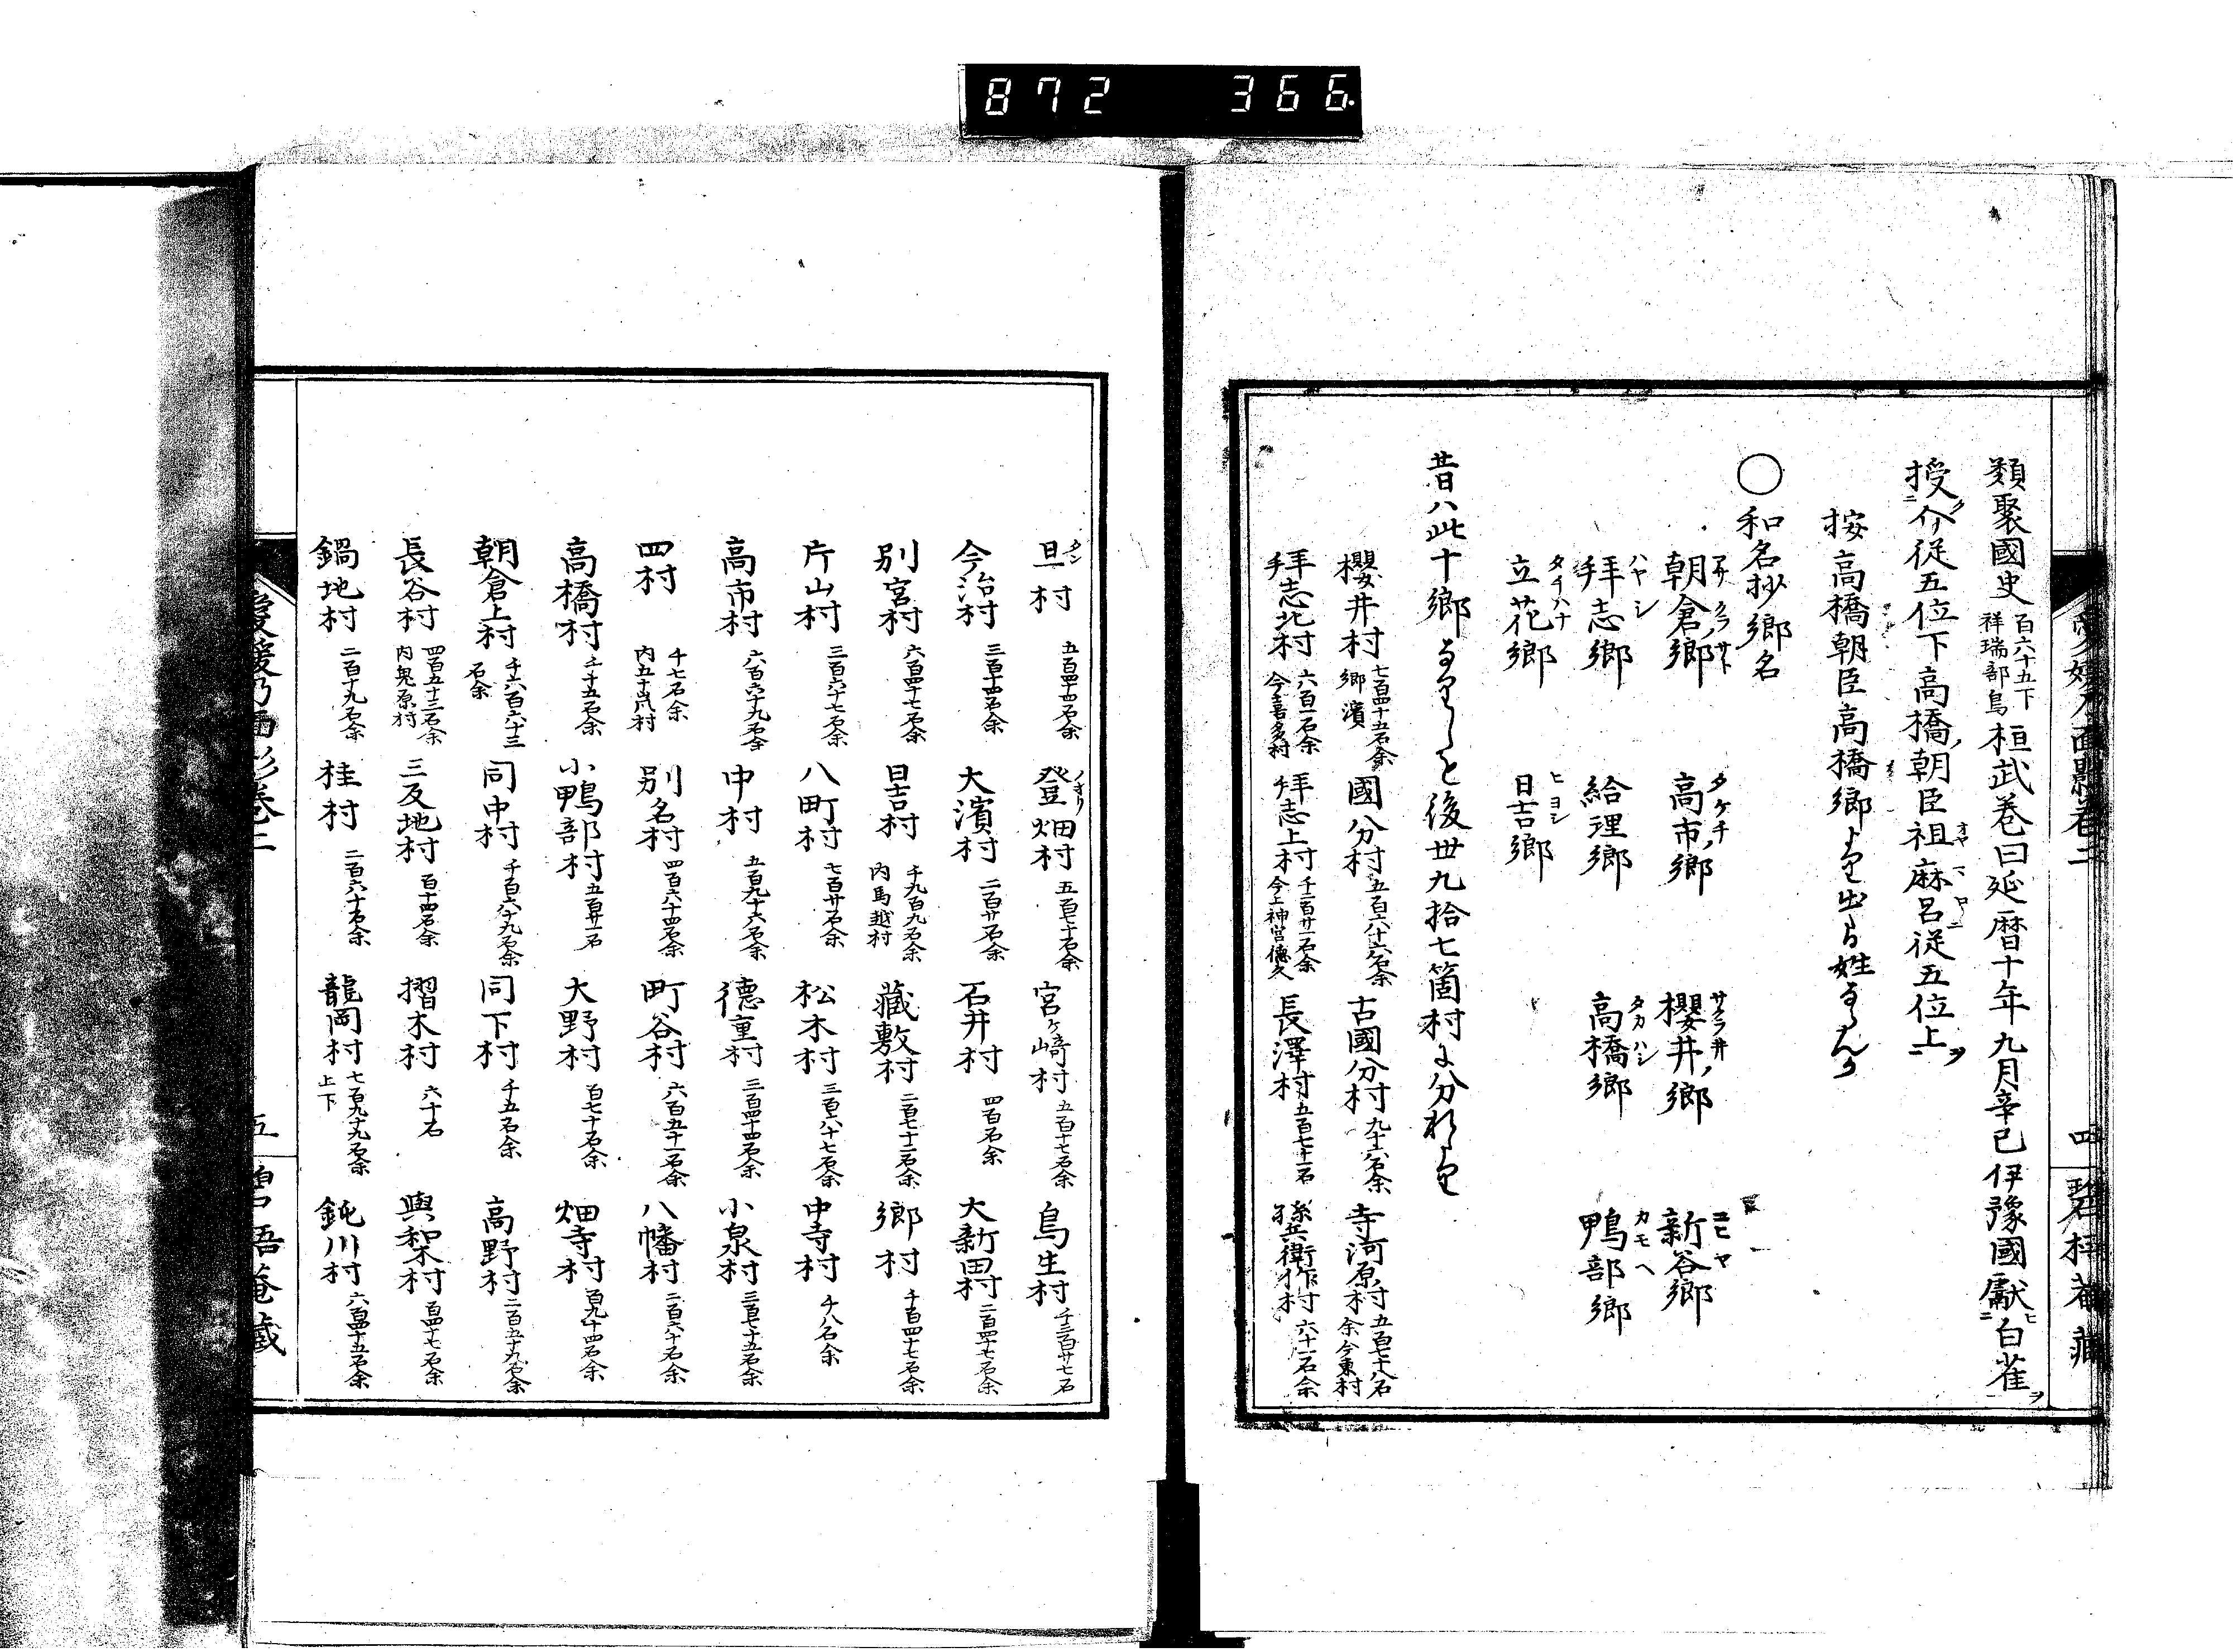 872 366
愛媛乃面影卷二
四
碧梧菴藏
類聚國史百六十五下祥瑞部鳥桓武卷曰延暦十年九月辛已伊豫國獻白雀
授介從五位下高橋朝臣祖麻呂從五位上
按高橋朝臣高橋郷より出る姓ならんか
〇和名抄郷名
朝倉郷 高市郷 櫻井郷 新谷郷
拜志郷 給理郷 高橋郷 鴨部郷
立花郷 日吉郷
昔ハ此十郷なりしを後世九拾七箇村に分れたり
櫻井村七百四十五石余郷濱 國分村五百六十六石余 古國分村九十六石余 寺河原村五百七十八石余今東村
拜志北村六百一石余今喜多村 拜志上村千二百廿一石余今上神宮德久 長澤村五百七十一石 孫兵衛作村六十一石余
旦村五百四十四石余 登畑村五百七十石余 宮ヶ崎村五百十七石余 鳥生村千三百廿七石
今治村三百十四石余 大濱村二百廿石余 石井村四百石余 大新田村二百四十七石余
別宮村六百四十七石余 日吉村千九百九石余内馬越村 藏敷村二百七十二石余 郷村千百四十七石余
片山村三百六十七石余 八町村七百廿石余 松木村三百八十七石余 中寺村千八石余
高市村六百六十九石余 中村五百九十六石余 德重村三百四十四石余 小泉村三百七十五石余
四村千七石余内五十嵐村 別名村四百六十四石余 町谷村六百五十一石余 八幡村二百六十石余
高橋村千十五石余 小鴨部村五百廿一石 大野村百七十石余 畑寺村百九十四石余
朝倉上村千六百六十三石余 同中村千百六十九石余 同下村千五石余 高野村二百五十九石余
長谷村四百五十三石余内鬼原村 三反地村百十四石余 摺木村六十石 與和木村百四十七石余
鍋地村二百十九石余 桂村二百六十石余 龍岡村七百九十九石余上下 鈍川村六百四十五石余
愛媛乃面影卷二
五
碧梧菴藏